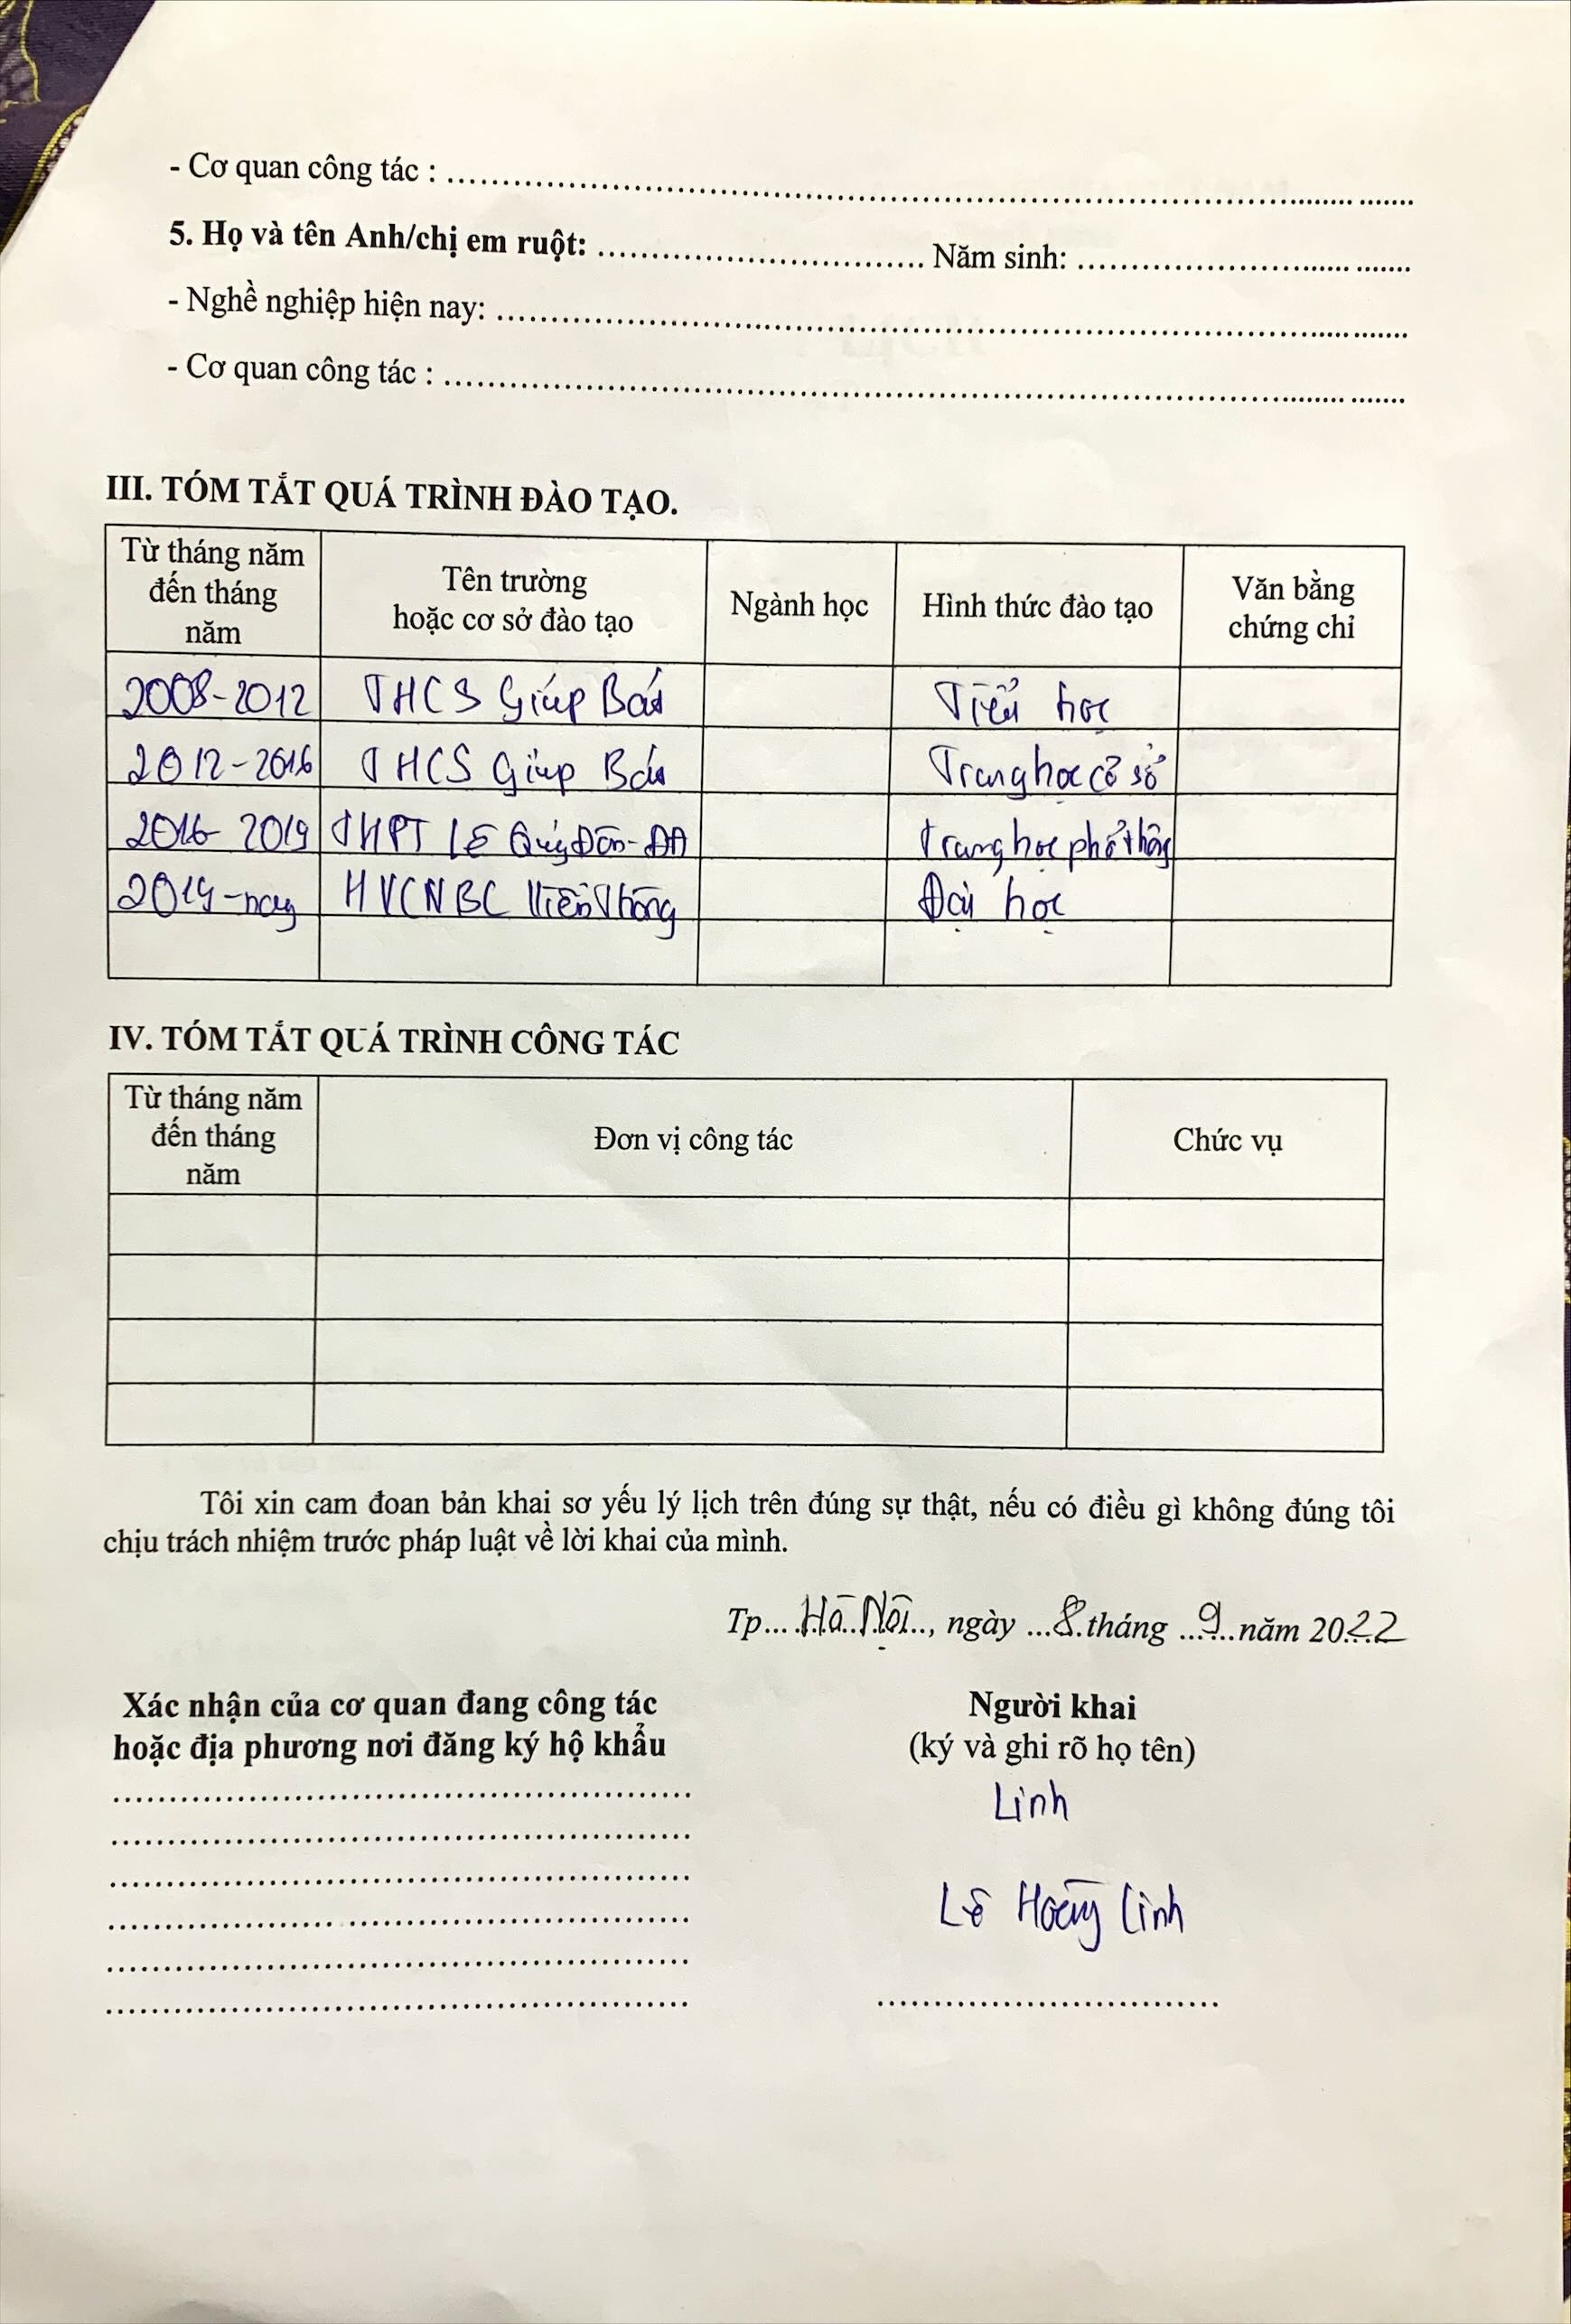 - Cơ quan công tác : ........................................
5. Họ và tên Anh/chị em ruột: .................... Năm sinh: ....................
- Nghề nghiệp hiện nay: ........................................
- Cơ quan công tác : ........................................
III. TÓM TẮT QUÁ TRÌNH ĐÀO TẠO.
Từ tháng năm đến tháng năm | Tên trường hoặc cơ sở đào tạo | Ngành học | Hình thức đào tạo | Văn bằng chứng chỉ
2008-2012 THCS Giáp Bát Tiểu học
2012-2016 THCS Giáp Bát Trung học cơ sở
2016-2019 THPT Lê Quý Đôn-ĐĐ Trung học phổ thông
2019-nay HVCNBC Viễn thông Đại học
IV. TÓM TẮT QUÁ TRÌNH CÔNG TÁC
Từ tháng năm đến tháng năm | Đơn vị công tác | Chức vụ
Tôi xin cam đoan bản khai sơ yếu lý lịch trên đúng sự thật, nếu có điều gì không đúng tôi
chịu trách nhiệm trước pháp luật về lời khai của mình.
Tp... Hà Nội.., ngày ...8.tháng ...9...năm 2022
Xác nhận của cơ quan đang công tác
hoặc địa phương nơi đăng ký hộ khẩu
Người khai
(ký và ghi rõ họ tên)
Linh
Lê Hoàng Linh